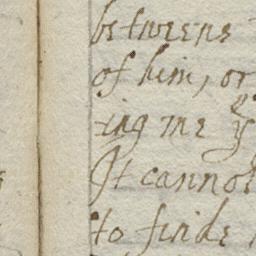 betweene
of him, or
ting me yt
It cannot
to finde